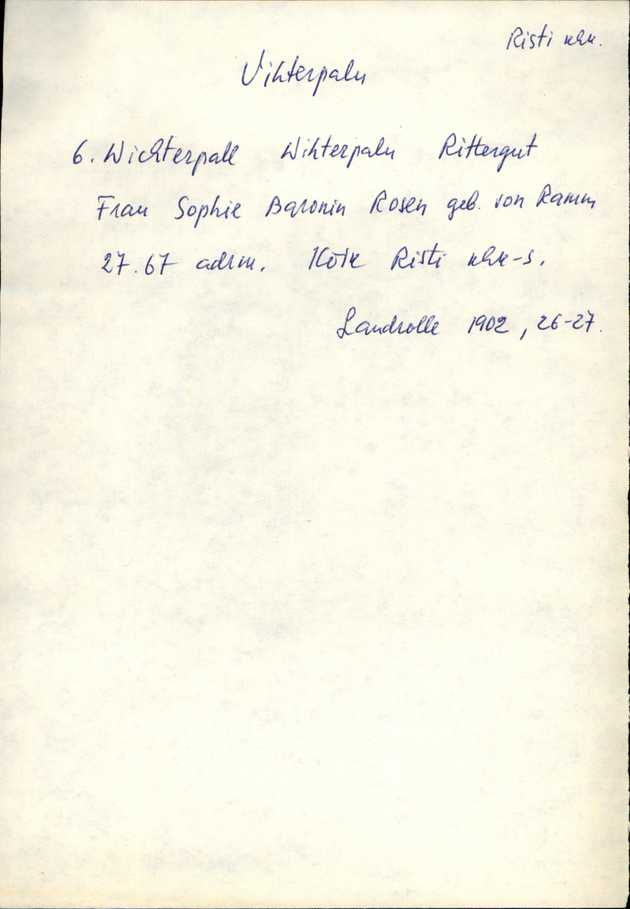 Risti khk.
Vihterpalu
6. Wichterpall Wihterpalu Rittergut
Frau Sophie Baronin Rosen geb. von Ramm
27.67 adrm. Kõik Risti khk-s.
Landrolle 1902, 26-27.